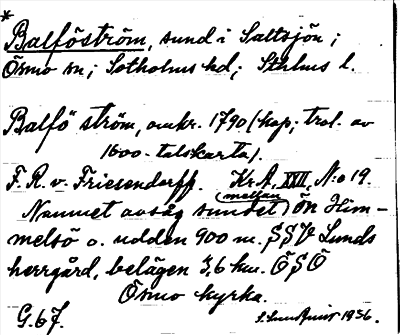 *
Balföström, sund i Saltsjön;
Ösmo sn; Sotholms hd; Sthlms l.
Balfö ström, omkr. 1790 (kop; trol. av
1600-talskarta).
F. R. v. Friesendorff. Kr. A. XXII, No 19.
Namnet avsåg sundet (mellan) ön Him-
melsö o. udden 900 m. SSV Lunds
herrgård, belägen 3,6 km. ÖSÖ
Ösmo kyrka.
G. 67. 1936.